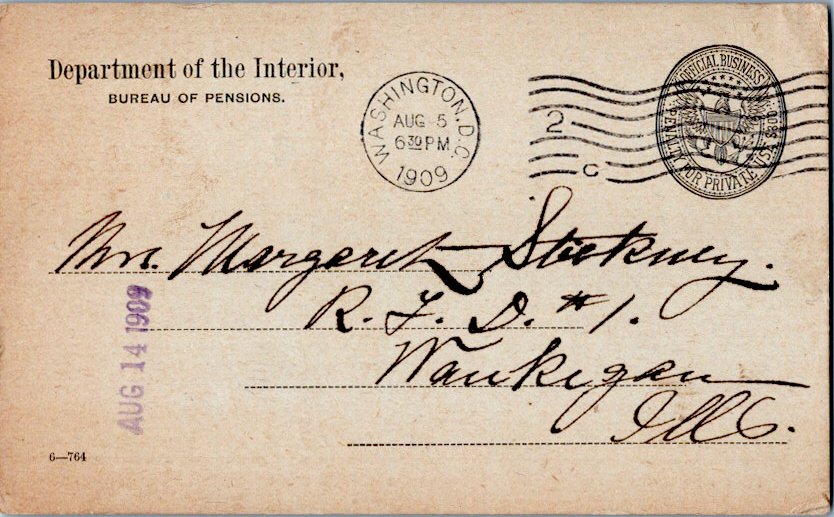 Department of the Interior,
BUREAU OF PENSIONS.
WASHINGTON, D.C.
AUG 5
6 30 PM
1909
2
C
OFFICIAL BUSINESS
PENALTY FOR PRIVATE USE $300
Mrs. Margaret Stickney.
R. F. D. #1.
Waukegan
Ills.
AUG 14 1909
6—764